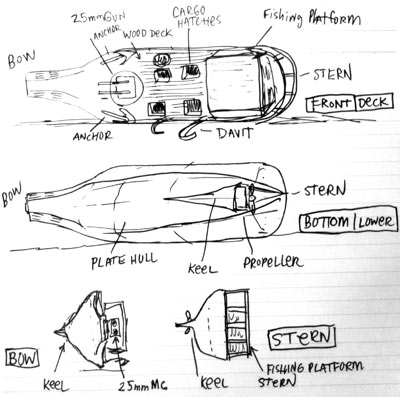 25mm GUN
ANCHOR
WOOD DECK
CARGO
HATCHES
Fishing Platform
BOW
STERN
FRONT DECK
ANCHOR
DAVIT
BOW
STERN
BOTTOM/LOWER
PLATE HULL
KEEL
PROPELLER
BOW
KEEL
25mm MG
KEEL
STERN
FISHING PLATFORM
STERN